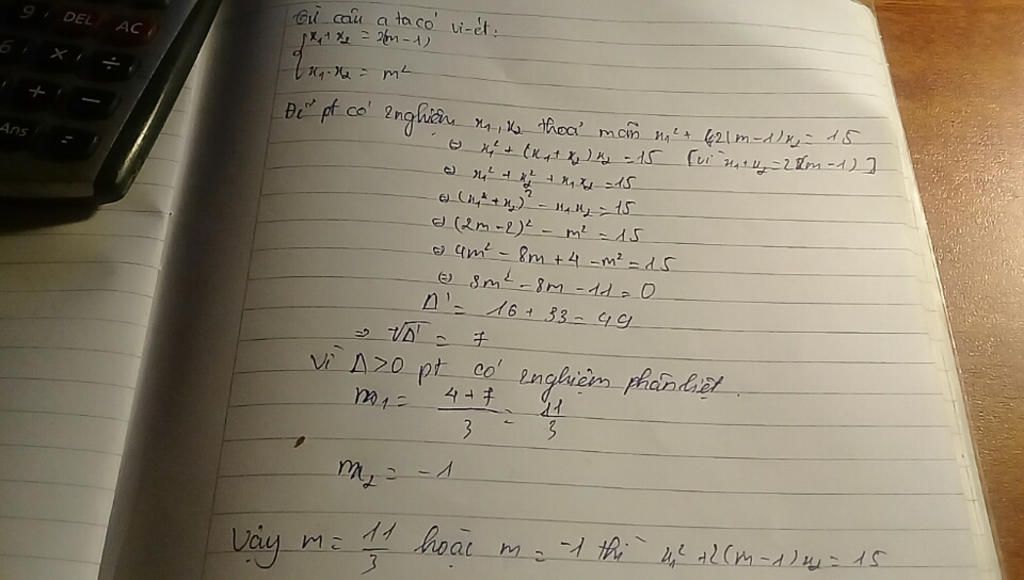 9 DEL AC
6 × ÷
+ −
Ans =
Từ câu a ta có vi-ét:
x₁ + x₂ = 2(m-1)
x₁.x₂ = m²
Để pt có 2 nghiệm x₁, x₂ thoả mãn x₁² + 2(m-1)x₂ = 15
⇔ x₁² + (x₁+x₂)x₂ = 15 [vì x₁+x₂ = 2(m-1)]
⇔ x₁² + x₂² + x₁x₂ = 15
⇔ (x₁²+x₂)² - x₁x₂ = 15
⇔ (2m-2)² - m² = 15
⇔ 4m² - 8m + 4 - m² = 15
⇔ 3m² - 8m - 11 = 0
Δ' = 16 + 33 = 49
⇒ √Δ' = 7
Vì Δ > 0 pt có 2 nghiệm phân biệt.
m₁ = (4+7)/3 = 11/3
m₂ = -1
Vậy m = 11/3 hoặc m = -1 thì x₁² + 2(m-1)x₂ = 15